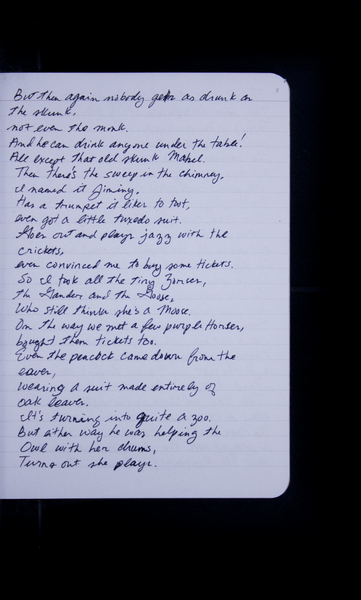 But then again nobody gets as drunk as
the skunk,
not even the monk.
And he can drink anyone under the table!
All except that old skunk Mabel.
Then there's the sweep in the chimney,
I named it Jiminy,
Has a trumpet it likes to toot,
even got a little tuxedo suit.
Goes out and plays jazz with the
crickets,
even convinced me to buy some tickets.
So I took all the tiny
the Gander and the Goose,
Who still thinks she's a Moose.
On the way we met a few purple Horses,
bought them tickets too.
Even the peacock came down from the
eaves,
wearing a suit made entirely of
oak leaves.
It's turning into quite a zoo.
But either way he was helping the
Owl with her drums,
Turns out she plays.